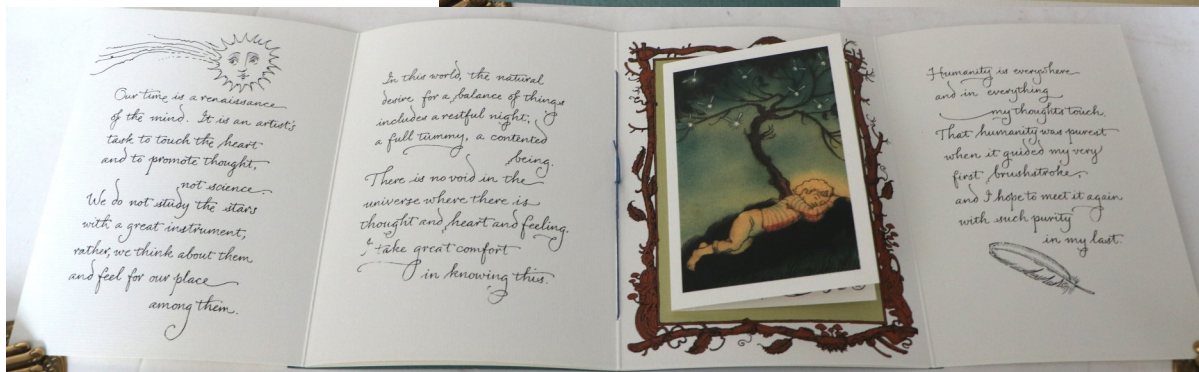 Our time is a renaissance
of the mind. It is an artist's
task to touch the heart
and to promote thought,
not science.
We do not study the stars
with a great instrument,
rather, we think about them
and feel for our place
among them.
In this world, the natural
desire for a balance of things
includes a restful night,
a full tummy, a contented
being.
There is no void in the
universe where there is
thought and heart and feeling.
I take great comfort
in knowing this.
Humanity is everywhere
and in everything
my thoughts touch.
That humanity was purest
when it guided my very
first brushstroke,
and I hope to meet it again
with such purity
in my last.